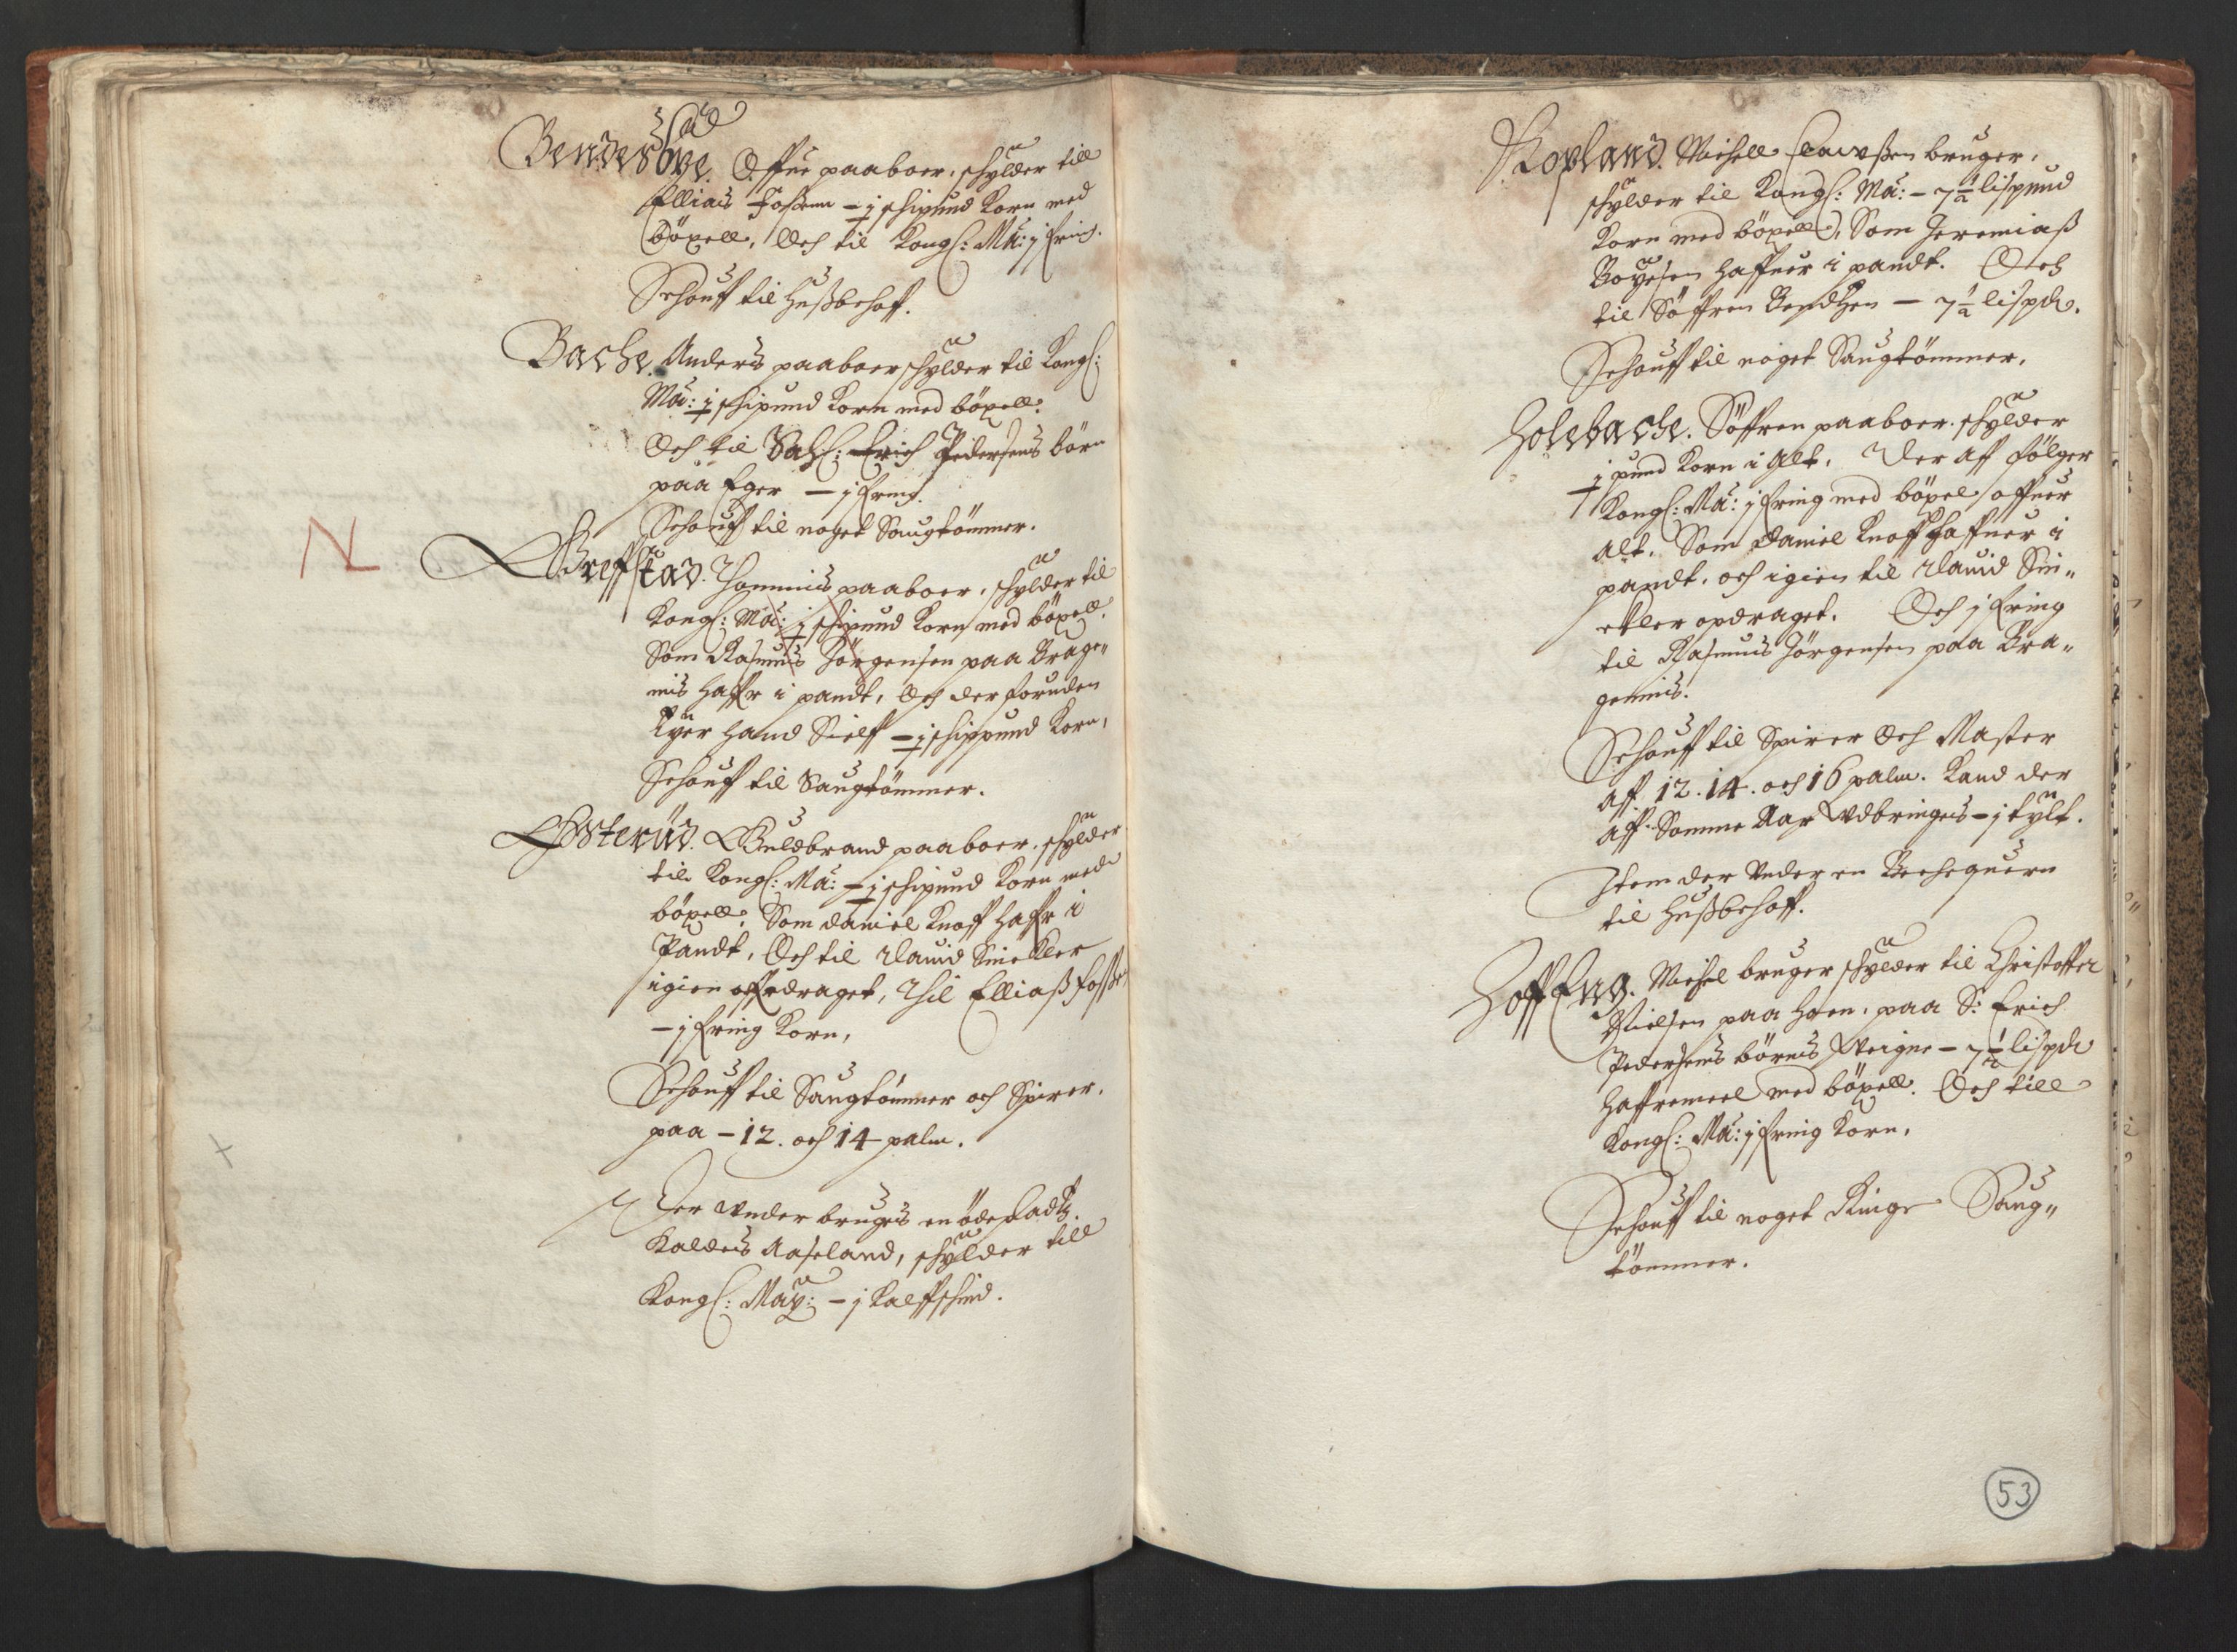 Bendesbye. Offue paaboer, schylder till
Ellias Fossum – ½ schipund Korn med
böxell, Och til Kongl: Ma: j fring.
Schouff til Hussbehoff.
Bache. Anders paaboer schylder til Kongl:
Ma: ½ schipund Korn med böxell.
Och til Sahl: Erich Pedersens börn
paa Eger – j fring.
Schouff til noget Saugtömmer.
N
Greffstad. Thommis paaboer, schylder til
Kongl: Ma: ½ schipund Korn med böxell.
Som Rasmus Jörgensen paa Brage„
nis haffr i pandt, Och der foruden
Eyer hand Sielff – ½ schippund Korn,
Schouff til Saugtömmer.
Østerud. Guldbrand paaboer, schylder
til Kongl: Ma: – ½ schipund Korn med
böxell. Som Daniel Knoff haffr i
Pandt, Och til Dauid Sinckler
igien offdraget, Thil Elliass fosse
– j fring Korn,
Schouff til Saugtömmer och Spirer,
paa – 12. och 14 palm.
Der vnder bruges en ödepladtz.
Kaldes Aaseland, schylder till
Kongl: May: – j Kalffschind.
Kopland. Michell Clauessen bruger,
schylder til Kongl: Ma: – 7½ lispund
Korn med böxell, Som Jeremiass
Boyesen haffuer i pandt. Och
til Söffren Bendtzen – 7½ lispd.
Schouff til noget Saugtömmer.
Holebache. Söffren paaboer schylder
½ pund Korn i Alt, Der aff fölger
Kongl: Ma: j fring med böxel offuer
alt. Som Daniel Knoff haffuer i
pandt, och igien til Dauid Sin„
ckler opdraget. Och j fring
til Rasmus Jörgensen paa Bra„
gennis.
Schouff til Spirer Och Master
aff 12. 14. och 16 palm. Kand der
aff Somme Aar Vdbringes – j tylt.
Item der vnder en Bechequern
til Hussbehoff.
Hoff Eng. Michel bruger schylder til Christoffer
Nielsen paa Hoen, paa S: Erich
Pedersens börns Weigne – 7½ lispd
Haffremeel med böxell. Och till
Kongl: Ma: j fring Korn,
Schouff til noget Ringe Saug„
tömmer.
53